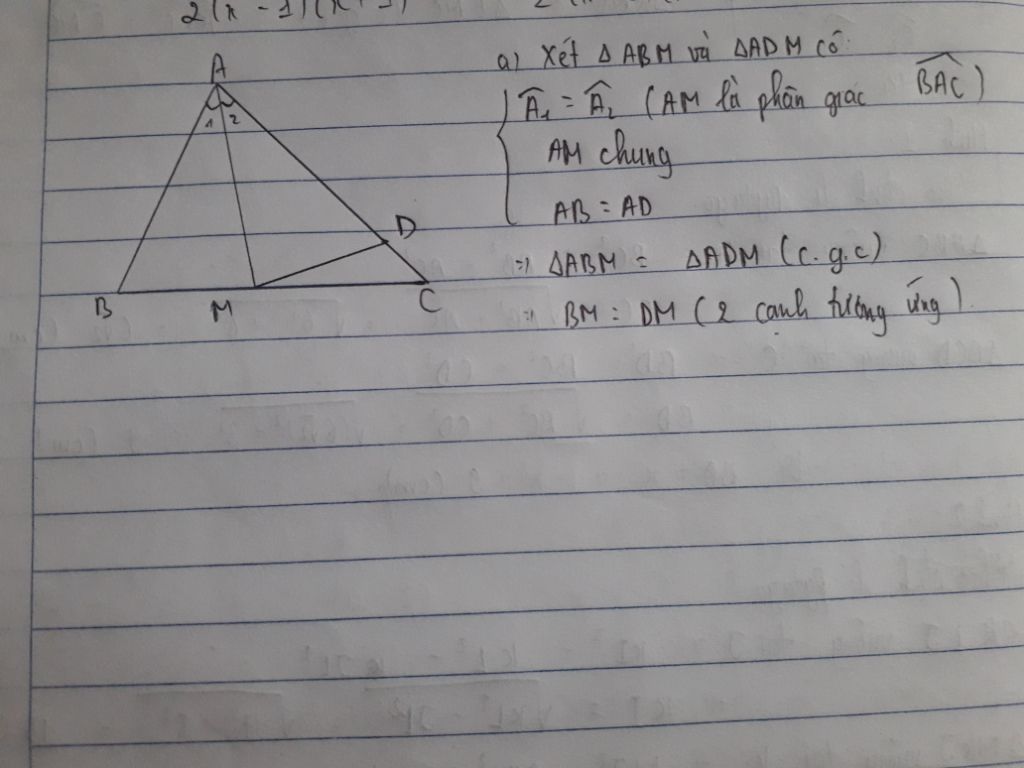 2(x-1)(x+1)
a) Xét Δ ABM và ΔADM có:
Â₁ = Â₂ (AM là phân giác \widehat{BAC})
AM chung
AB = AD
=> ΔABM = ΔADM (c.g.c)
=> BM = DM (2 cạnh tương ứng)
A
1 2
D
B M C